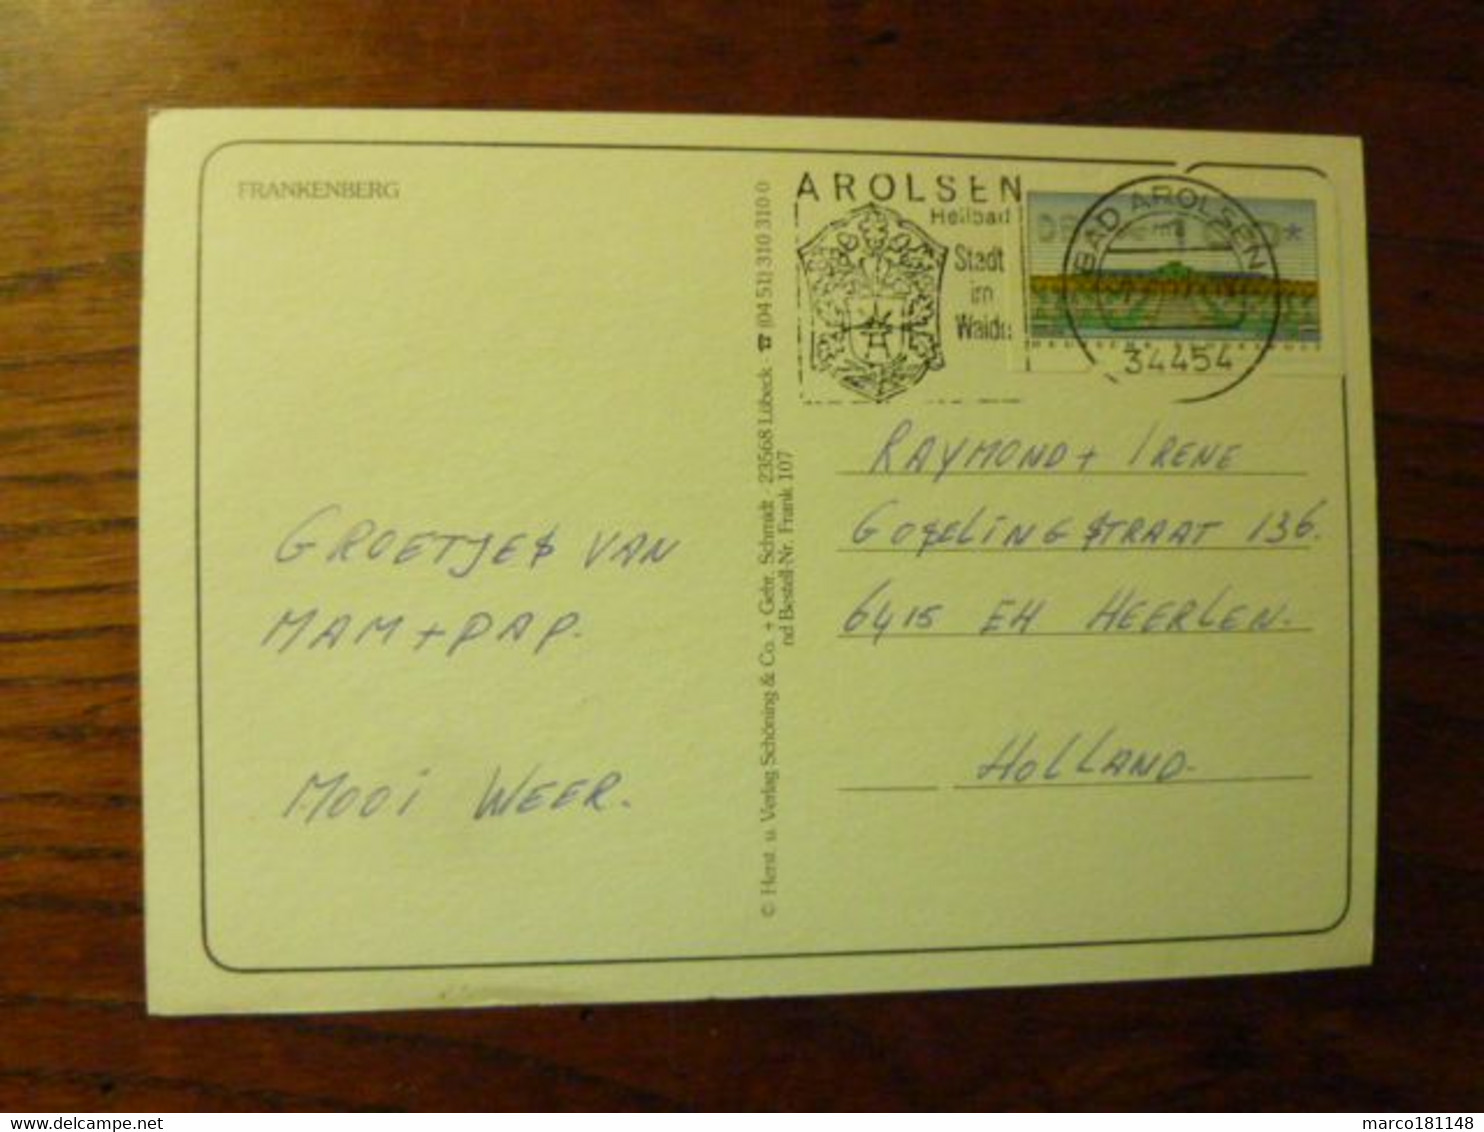 FRANKENBERG
GROETJES VAN
MAM + PAP.
MOOI WEER.
© Herst. u. Verlag Schöning & Co. + Gebr. Schmidt · 23568 Lübeck · ☎ (04 51) 310 310 0
nd Bestell-Nr. Frank 107
AROLSEN
Heilbad
Stadt
im
Walde
BAD AROLSEN
34454
RAYMOND + IRENE
GOSELINGSTRAAT 136.
6415 EH HEERLEN.
HOLLAND.
marco181148